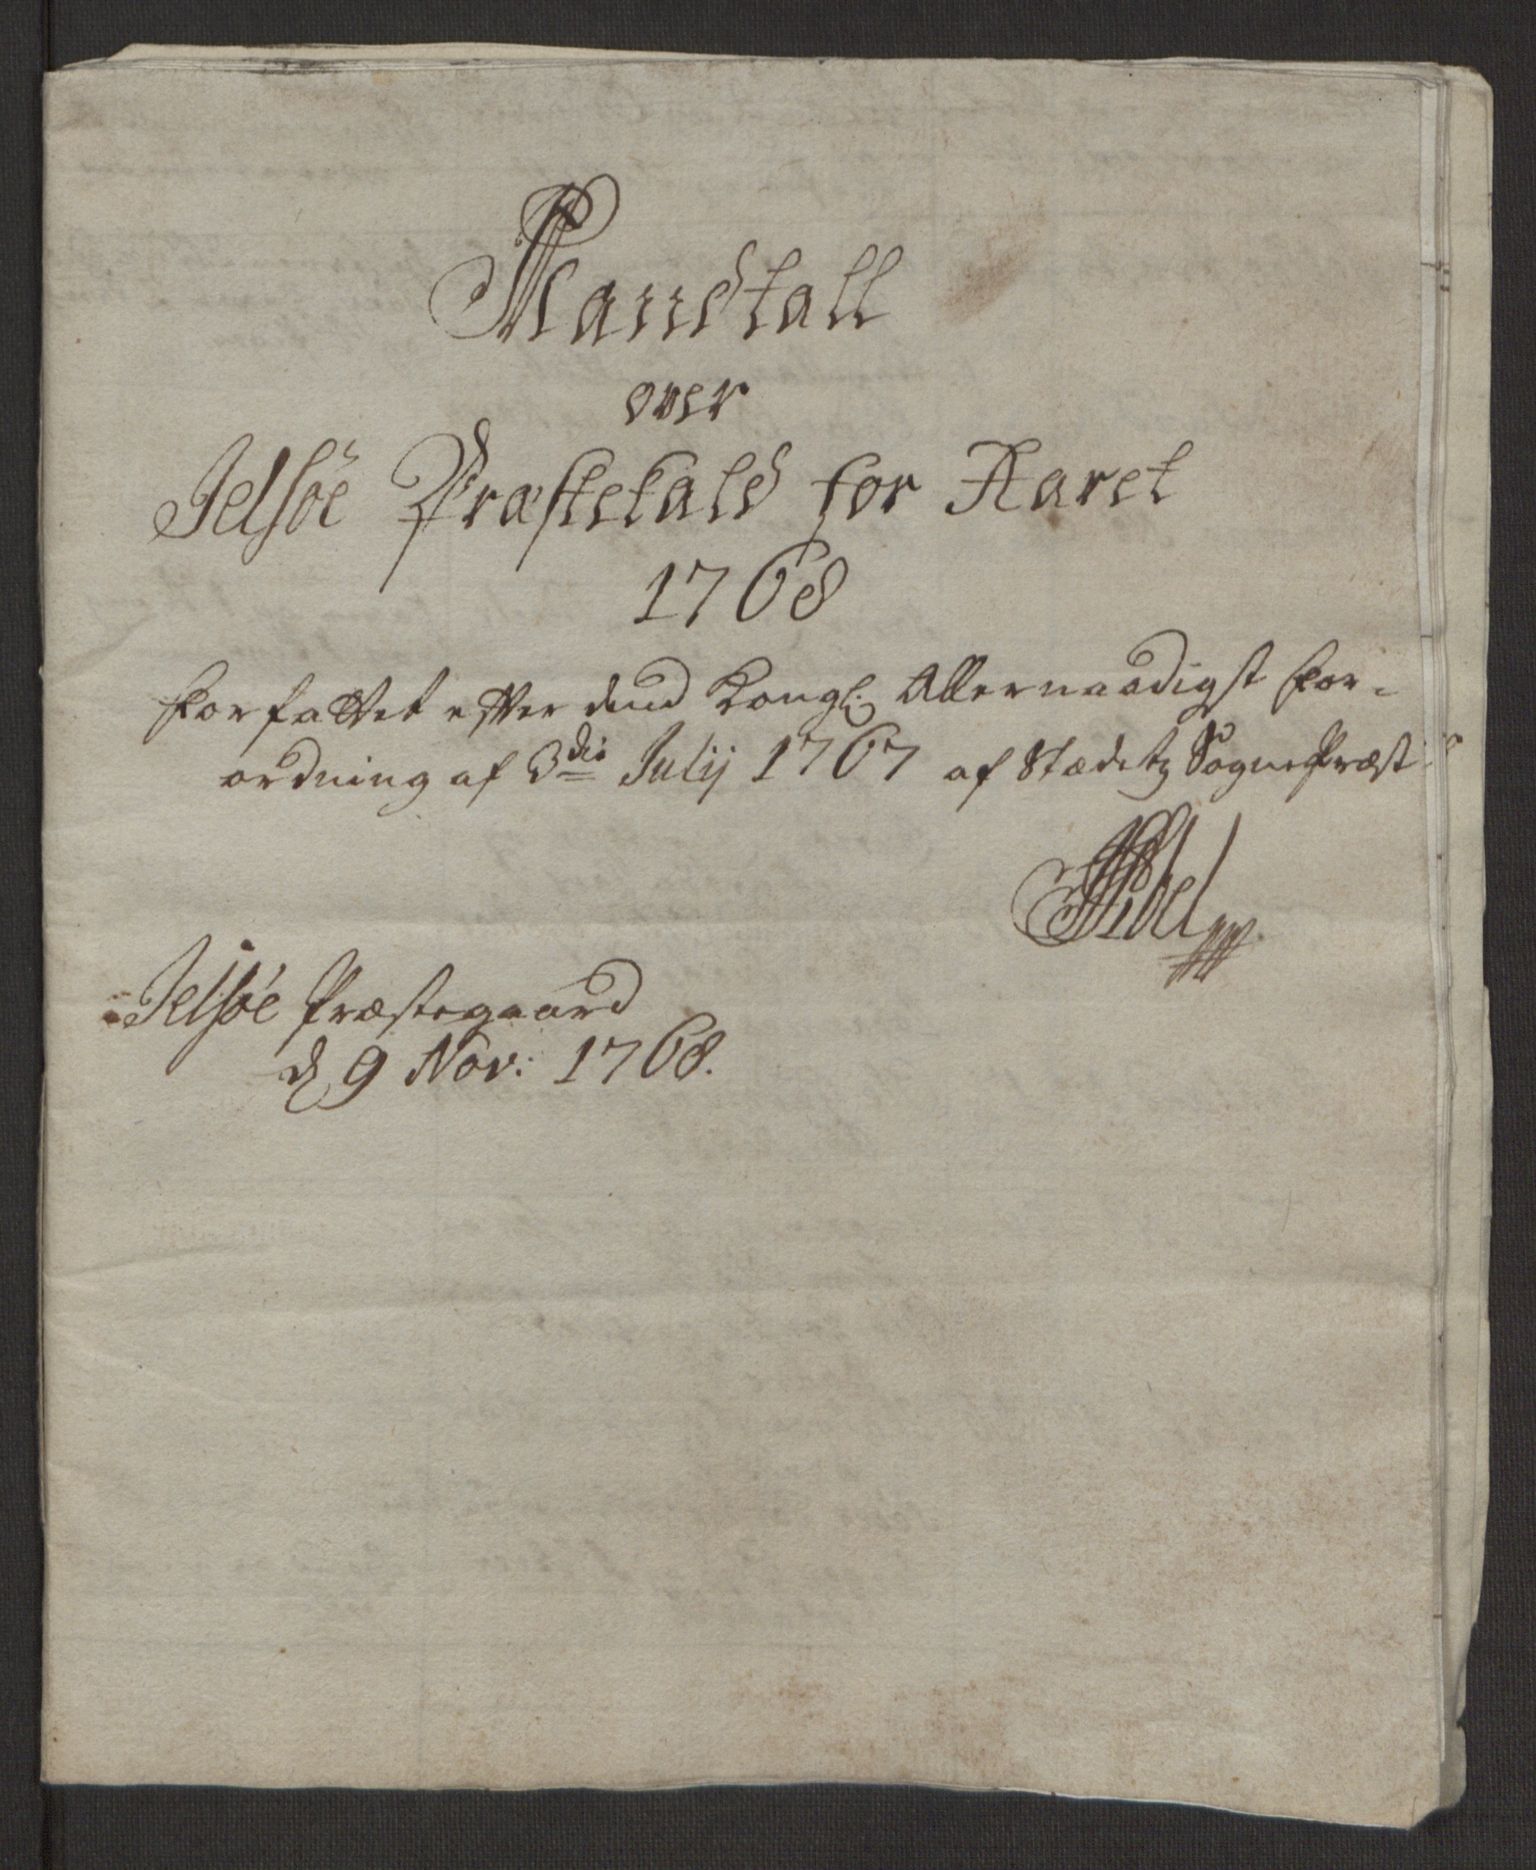 Mandtall
over
Jelsøe Præstekald for Aaret
1768
forfattet efter dend Kongl: Allernaadigst for-
ordning af 3die Julij 1767 af Stædetz SognePræst
Jelsøe Præstegaard
d 9 Nov: 1768.